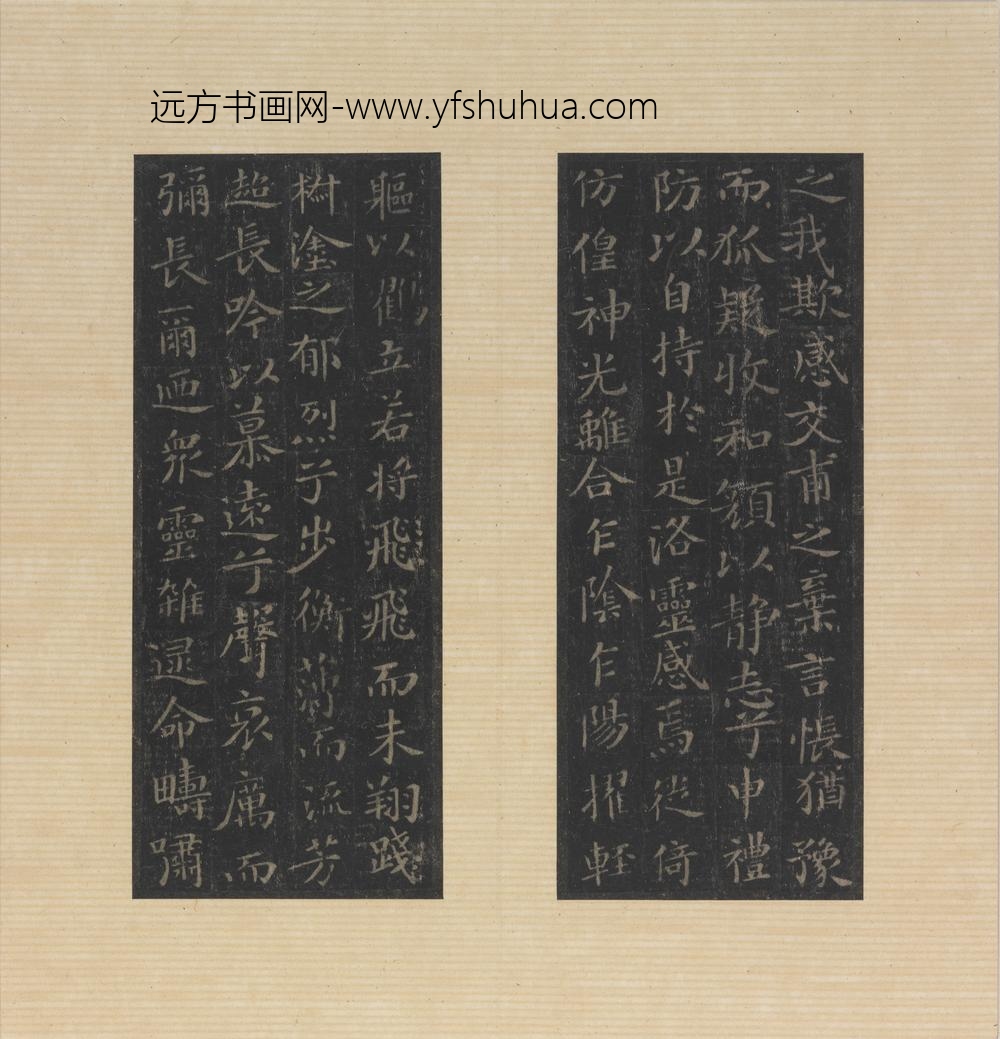 远方书画网-www.yfshuhua.com
之我欺感交甫之棄言悵猶豫
而狐疑收和顏以静志兮申禮
防以自持於是洛靈感焉徙倚
仿偟神光離合乍陰乍陽擢輕
軀以鶴立若将飛飛而未翔踐
椒塗之郁烈兮步衡薄而流芳
超長吟以慕遠兮聲哀厲而
彌長爾迺衆靈雜遝命疇嘯